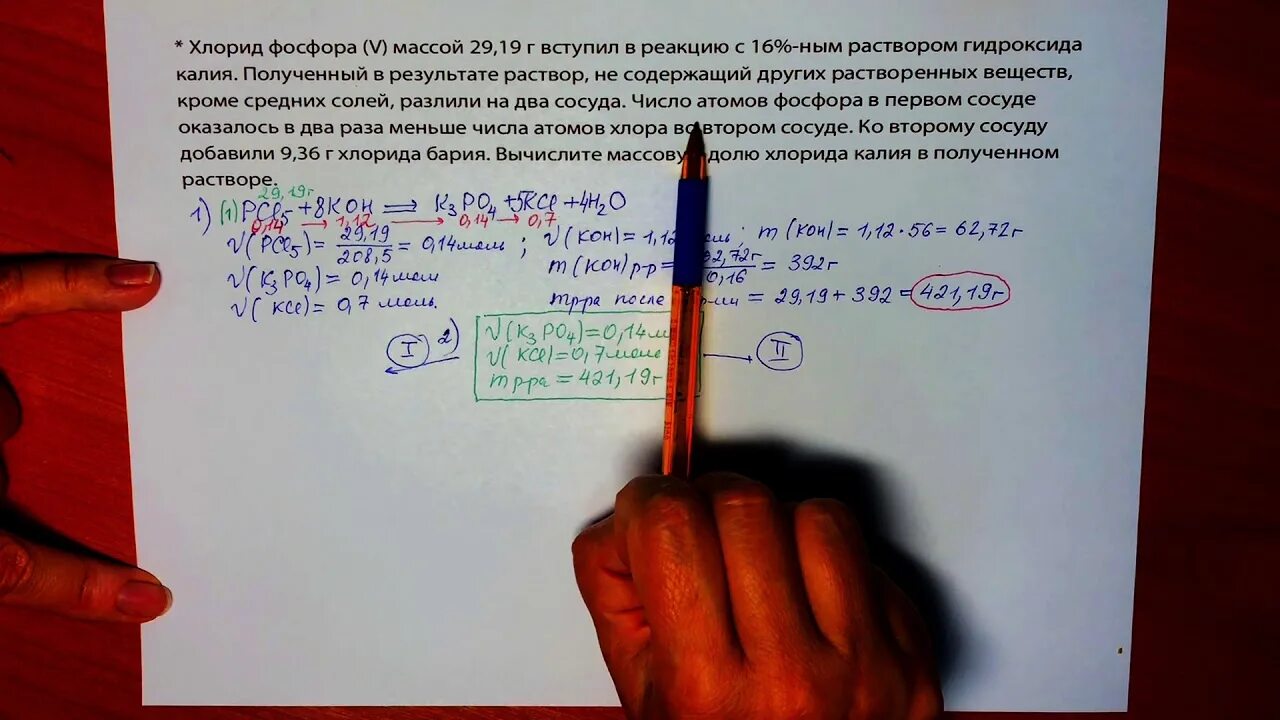 * Хлорид фосфора (V) массой 29,19 г вступил в реакцию с 16%-ным раствором гидроксида
калия. Полученный в результате раствор, не содержащий других растворенных веществ,
кроме средних солей, разлили на два сосуда. Число атомов фосфора в первом сосуде
оказалось в два раза меньше числа атомов хлора во втором сосуде. Ко второму сосуду
добавили 9,36 г хлорида бария. Вычислите массову долю хлорида калия в полученном
растворе.
29,19г
1) (1) PCl5 + 8KOH ⟹ K3PO4 + 5KCl + 4H2O
0,14 → 1,12 → 0,14 → 0,7
ν(PCl5) = 29,19/208,5 = 0,14моль ; ν(KOH) = 1,12 ; m(KOH) = 1,12·56 = 62,72г
ν(K3PO4) = 0,14моль m(KOH)р-р = 2,72г/0,16 = 392г
ν(KCl) = 0,7 моль. mр-ра после = 29,19 + 392 = 421,19г
I 2) ν(K3PO4) = 0,14м II
ν(KCl) = 0,7моль
mр-ра = 421,19г